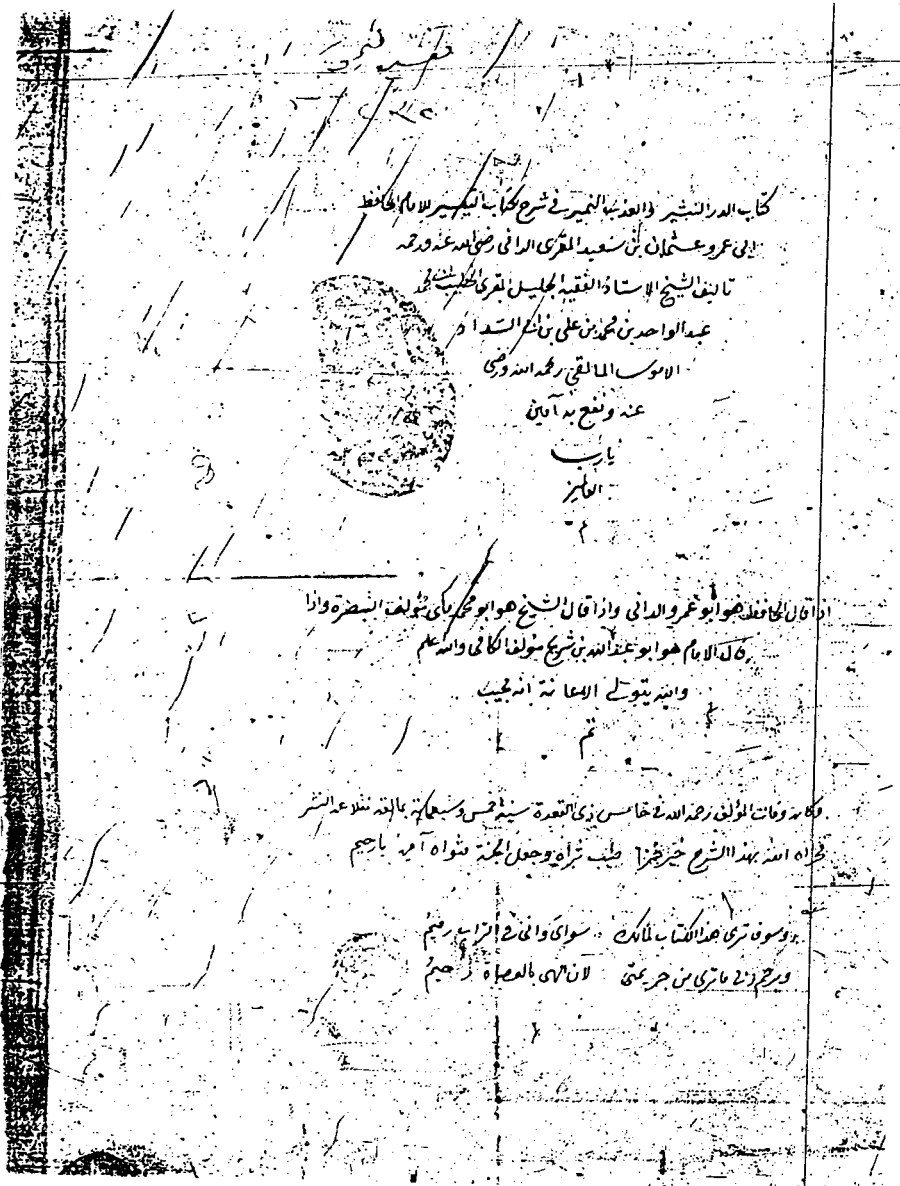 كتاب الدر النثير والعذب النمير في شرح كتاب التيسير للامام الحافظ
ابى عمرو عثمان بن سعيد المقرى الدانى رضى الله عنه ورحمه
تاليف الشيخ الاستاذ الفقيه الجليل المقرى الخطيب ابى محمد
عبد الواحد بن محمد بن على بن ابى السداد
الاموى المالقى رحمه الله ورضى
عنه ونفع به آمين
يارب
العالمين
م
اذا قال الحافظ هو ابو عمرو الدانى واذا قال الشيخ هو ابو محمد مكى مؤلف التبصرة واذا
قال الامام هو ابو عبد الله بن شريح مؤلف الكافى والله علم
والله يتولى الاعانة انه مجيب
تم
وكانت وفات المؤلف رحمه الله فى خامس ذى القعدة سنة خمس وسبعمائة بمالقه نقلا عن النشر
فجزاه الله بهذا الشرح خير طيب ثراه وجعل الجنة مثواه آمين يارحيم
وسوف ترى هذا الكتاب لمالك سواى وانى فى التراب رميم
ويرحم ترى من جريمتى لان الهى بالعصاه رحيم